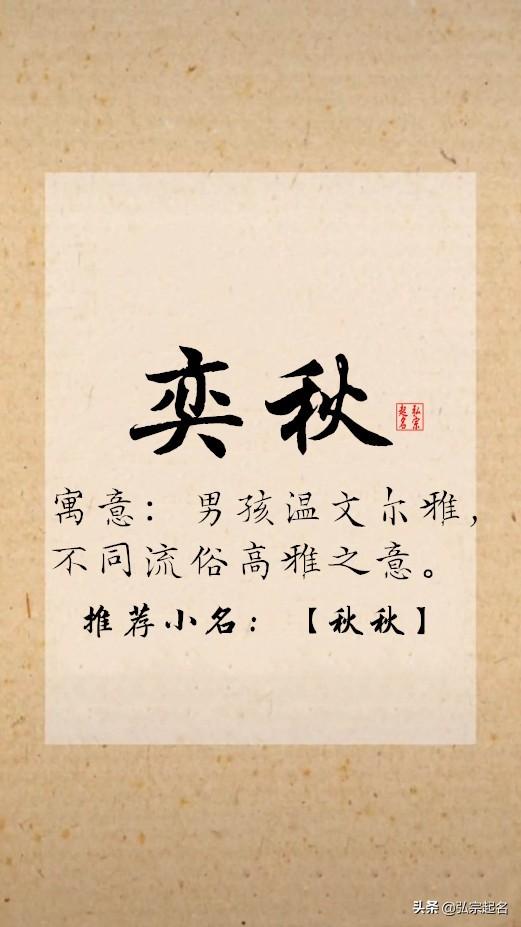 奕秋
弘宗
起名
寓意：男孩温文尔雅，
不同流俗高雅之意。
推荐小名：【秋秋】
头条 @弘宗起名